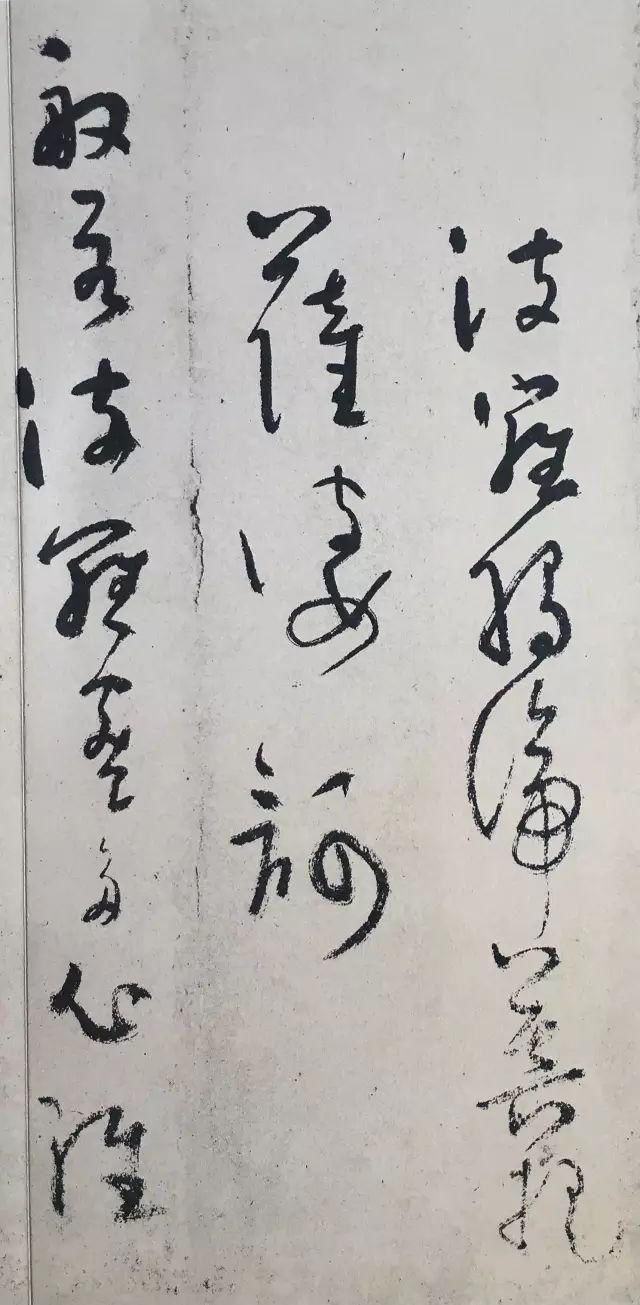 波羅揭諦菩提
薩婆訶
般若波羅蜜多心經